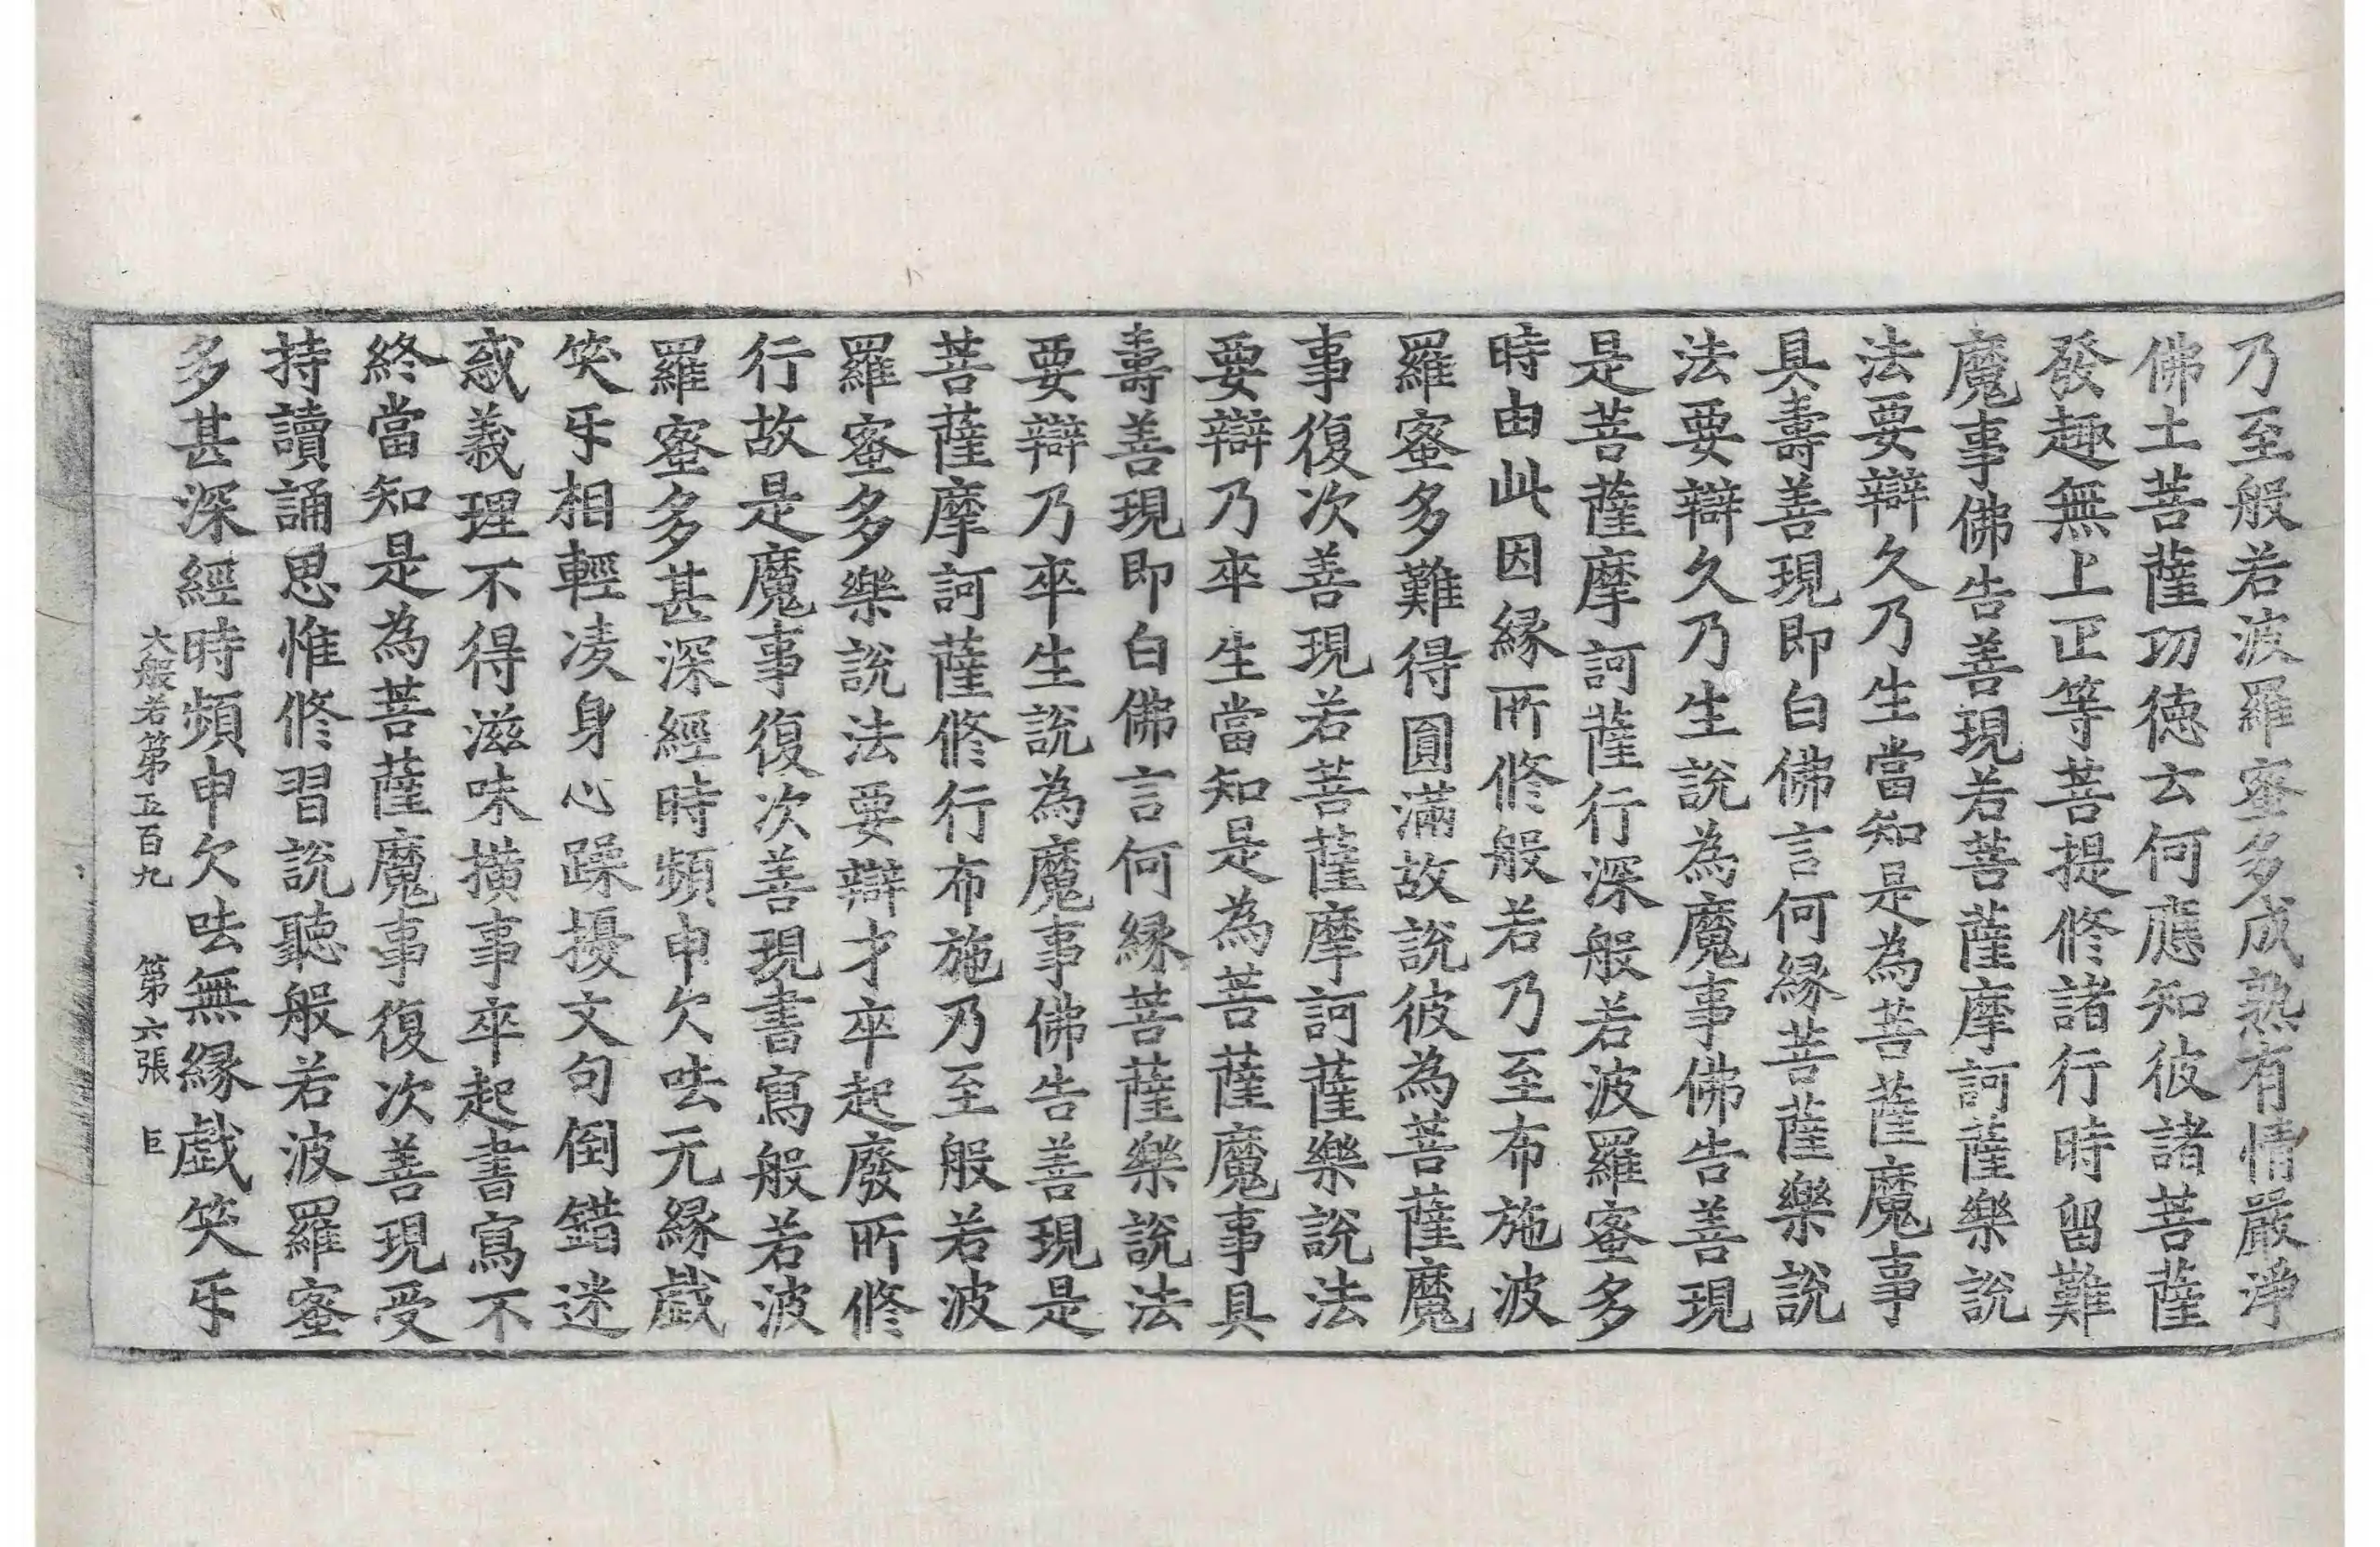 乃至般若波羅蜜多成熟有情嚴淨
佛土菩薩功德云何應知彼諸菩薩
發趣無上正等菩提修諸行時留難
魔事佛告善現若菩薩摩訶薩樂說
法要辯久乃生當知是為菩薩魔事
具壽善現即白佛言何縁菩薩樂說
法要辯久乃生說為魔事佛告善現
是菩薩摩訶薩行深般若波羅蜜多
時由此因縁所修般若乃至布施波
羅蜜多難得圓滿故說彼為菩薩魔
事復次善現若菩薩摩訶薩樂說法
要辯乃卒生當知是為菩薩魔事具
壽善現即白佛言何縁菩薩樂說法
要辯乃卒生說為魔事佛告善現是
菩薩摩訶薩修行布施乃至般若波
羅蜜多樂說法要辯才卒起廢所修
行故是魔事復次善現書寫般若波
羅蜜多甚深經時頻申欠呿无縁戲
笑㸦相輕凌身心躁擾文句倒錯迷
惑義理不得滋味撗事卒起書寫不
終當知是為菩薩魔事復次善現受
持讀誦思惟修習說聽般若波羅蜜
多甚深經時頻申欠呿無縁戲笑㸦
大般若第五百九 第六張 巨